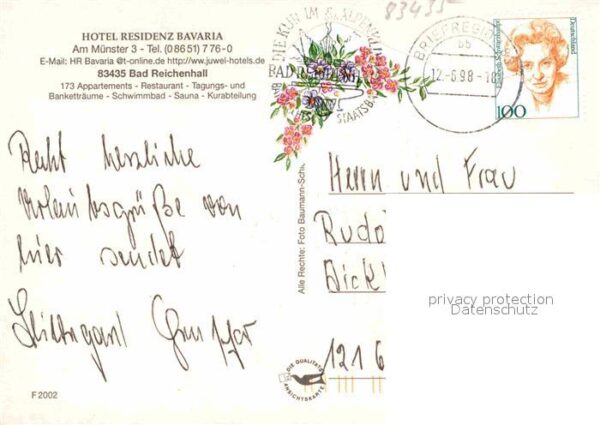 HOTEL RESIDENZ BAVARIA
Am Münster 3 - Tel. (0 86 51) 7 76-0
E-Mail: HR Bavaria @t-online.de http://www.juwel-hotels.de
83435 Bad Reichenhall
173 Appartements - Restaurant - Tagungs- und
Banketträume - Schwimmbad - Sauna - Kurabteilung
83435
DIE KUR IM ALPENKLIMA
BAD REICHENHALL
STAATSB
BRIEFREGION
bb
12.-6.98-18
Deutschland
100
Recht herzliche
Urlaubsgrüße von
hier sendet
Alle Rechte: Foto Baumann-Schi
Herrn und Frau
Rudo
Bickl
1216
privacy protection
Datenschutz
DIE QUALITÄTS
ANSICHTSKARTE
F 2002